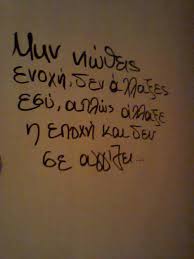 Μην νιώθεις
ενοχή, δεν άλλαξες
εσύ, απλώς άλλαξε
η εποχή και δεν
σε αγγίζει...